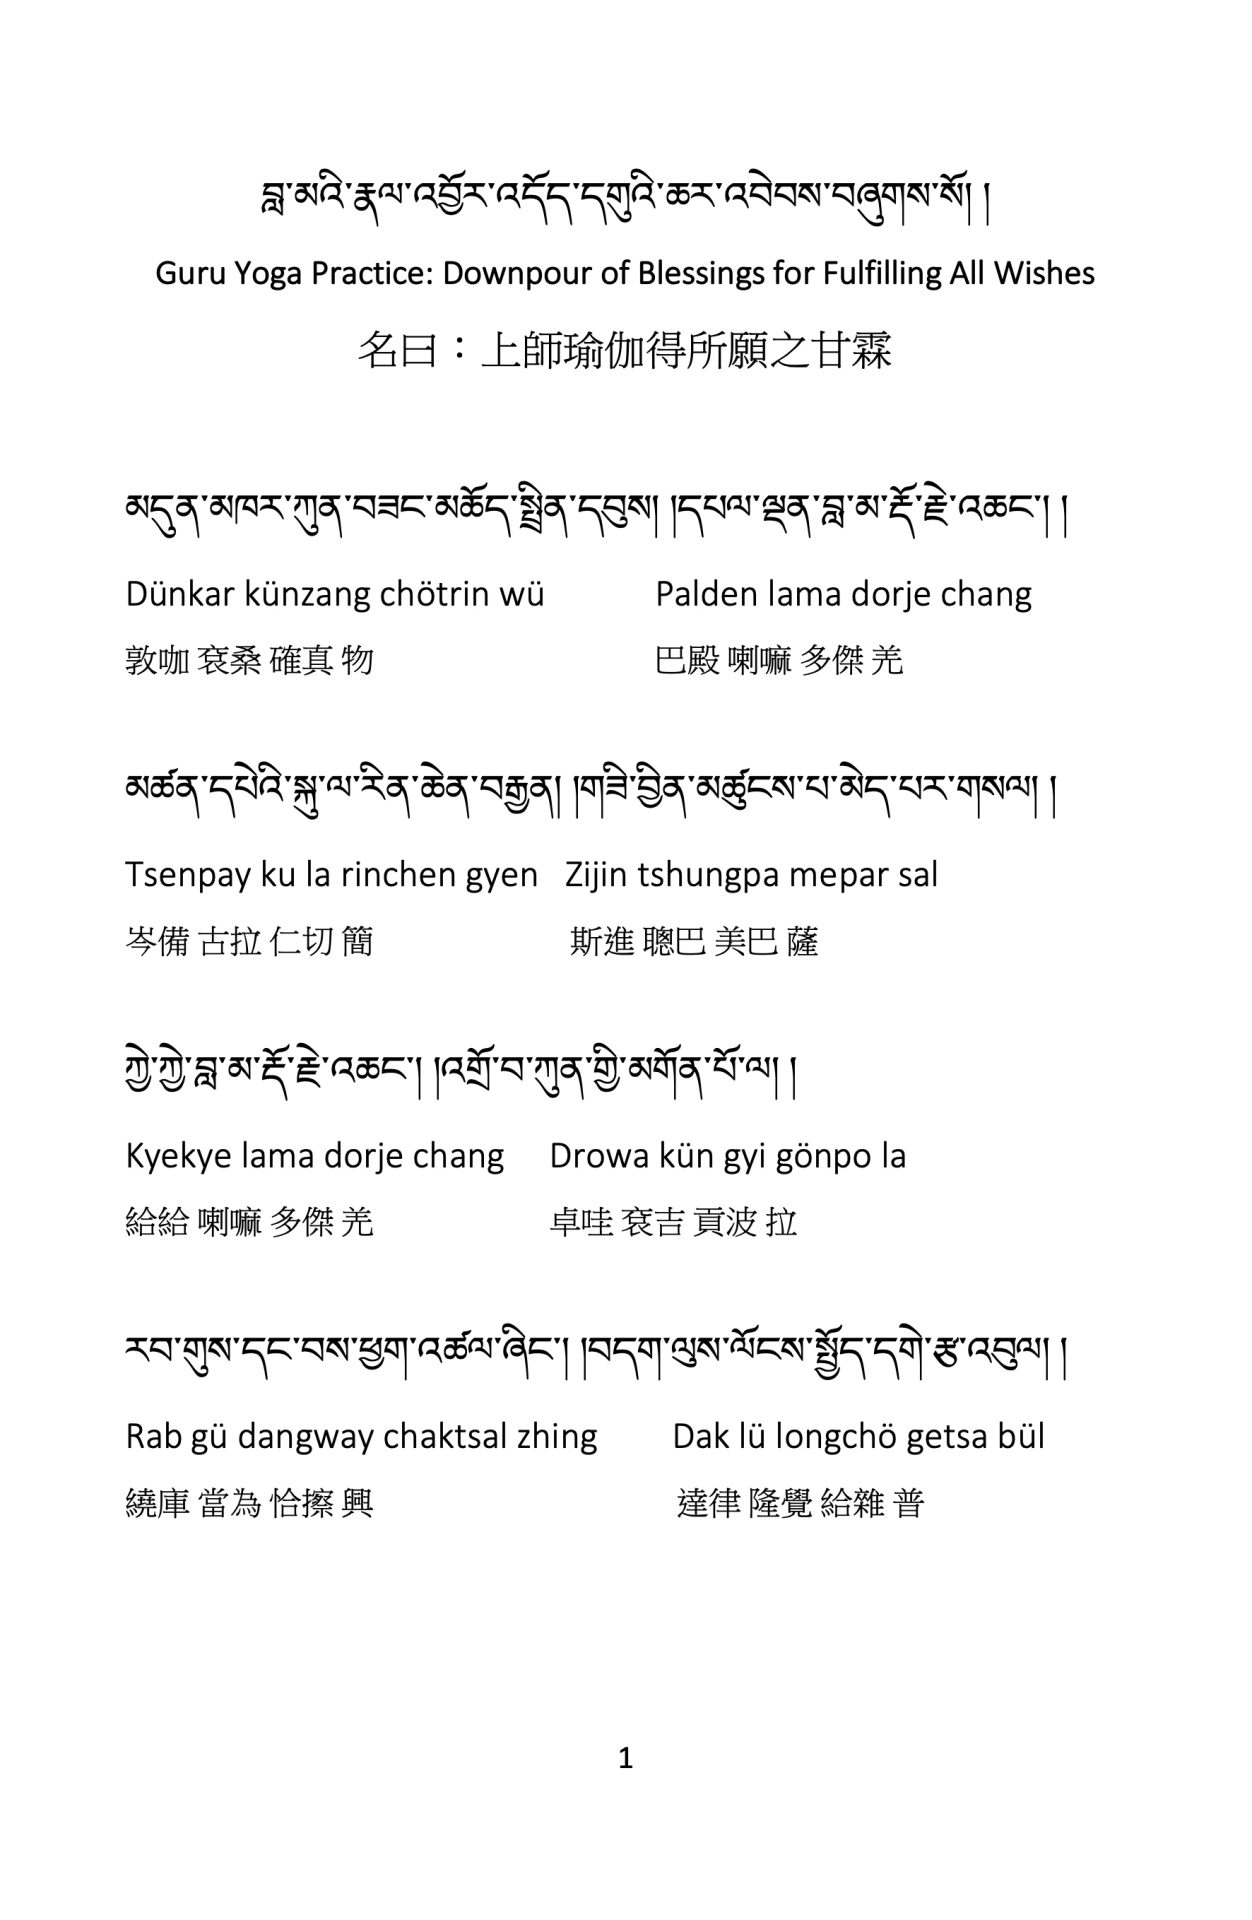 བླ་མའི་རྣལ་འབྱོར་འདོད་དགུའི་ཆར་འབེབས་བཞུགས་སོ། །
Guru Yoga Practice: Downpour of Blessings for Fulfilling All Wishes
名曰：上師瑜伽得所願之甘霖
མདུན་མཁར་ཀུན་བཟང་མཆོད་སྤྲིན་དབུས། །དཔལ་ལྡན་བླ་མ་རྡོ་རྗེ་འཆང་། །
Dünkar künzang chötrin wü Palden lama dorje chang
敦咖 袞桑 確真 物 巴殿 喇嘛 多傑 羌
མཚན་དཔེའི་སྐུ་ལ་རིན་ཆེན་བརྒྱན། །གཟི་བྱིན་མཚུངས་པ་མེད་པར་གསལ། །
Tsenpay ku la rinchen gyen Zijin tshungpa mepar sal
岑備 古拉 仁切 簡 斯進 聰巴 美巴 薩
ཀྱེ་ཀྱེ་བླ་མ་རྡོ་རྗེ་འཆང་། །འགྲོ་བ་ཀུན་གྱི་མགོན་པོ་ལ། །
Kyekye lama dorje chang Drowa kün gyi gönpo la
給給 喇嘛 多傑 羌 卓哇 袞吉 貢波 拉
རབ་གུས་དང་བས་ཕྱག་འཚལ་ཞིང་། །བདག་ལུས་ལོངས་སྤྱོད་དགེ་རྩ་འབུལ། །
Rab gü dangway chaktsal zhing Dak lü longchö getsa bül
繞庫 當為 恰擦 興 達律 隆覺 給雜 普
1